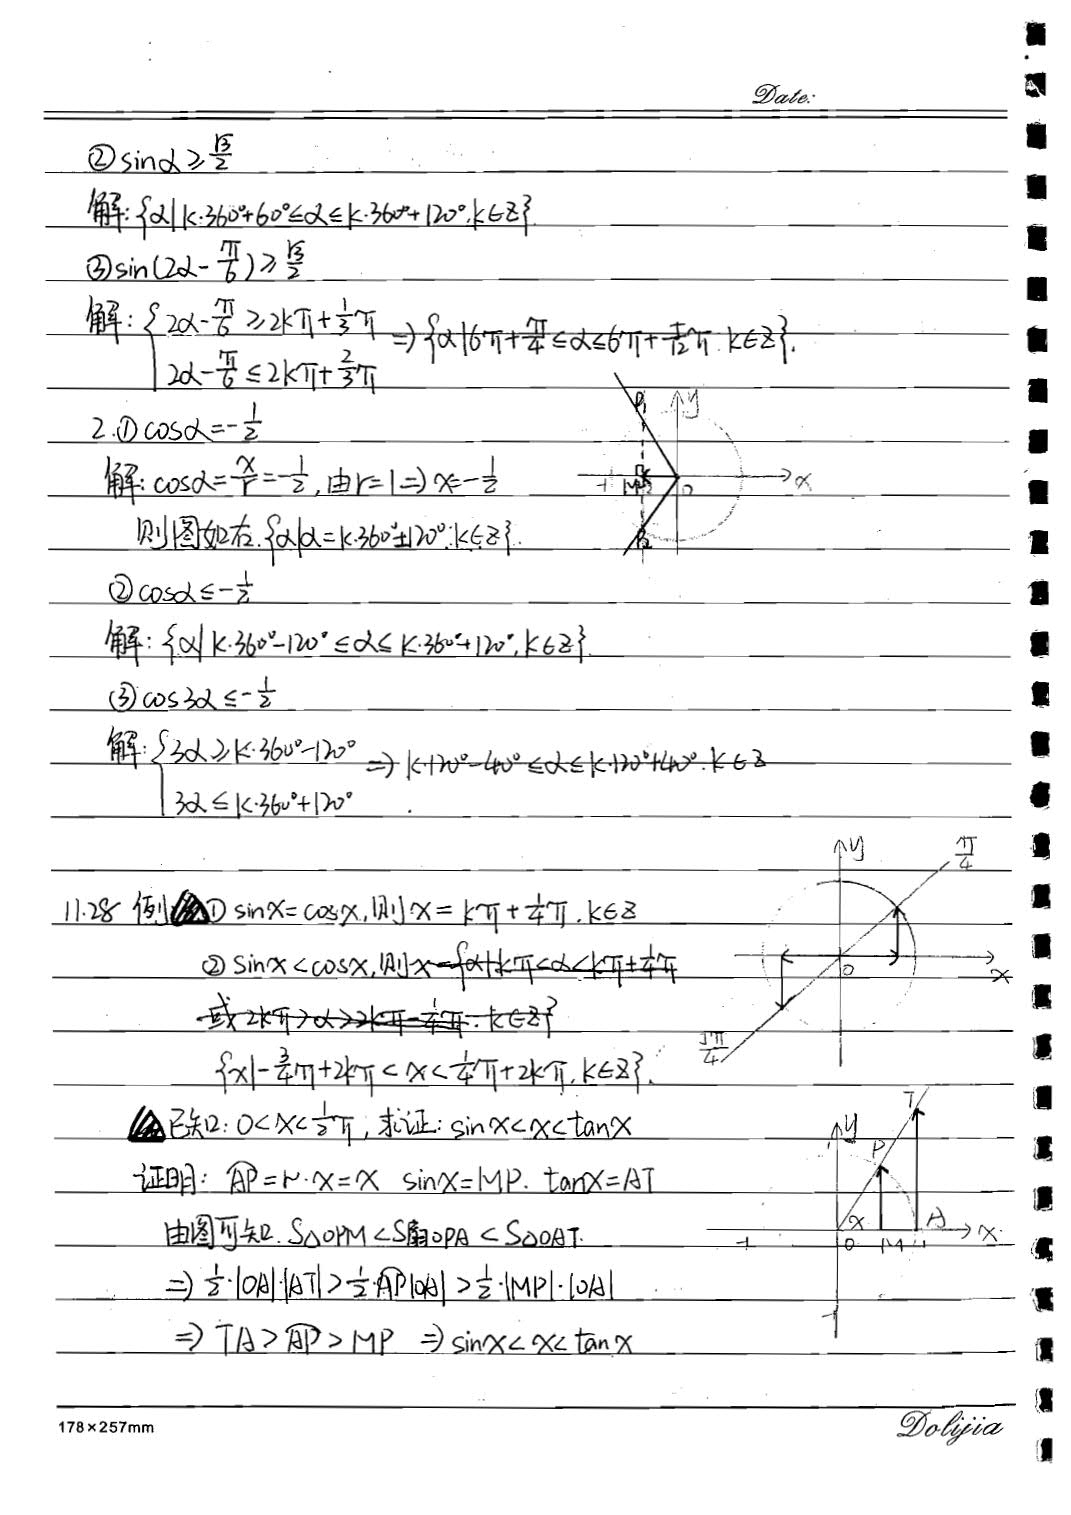 Date:
②sinα≥√3/2
解:{α|k·360°+60°≤α≤k·360°+120°,k∈Z}.
③sin(2α-π/6)≥√3/2
解:{2α-π/6≥2kπ+1/3π ⇒{α|6π+π/4≤α≤6π+5/12π.k∈Z}.
2α-π/6≤2kπ+2/3π
2.①cosα=-1/2
解:cosα=x/r=-1/2,由r=1⇒x=-1/2
则图如右.{α|α=k·360°±120°,k∈Z}.
P₁ y
-1 M 0 x
P₂
②cosα≤-1/2
解:{α|k·360°-120°≤α≤k·360°+120°,k∈Z}.
③cos3α≤-1/2
解:{3α≥k·360°-120° ⇒k·120°-40°≤α≤k·120°+40°.k∈Z
3α≤k·360°+120°
11.28 例 ①sinx=cosx,则x=kπ+1/4π.k∈Z
②sinx<cosx,则x={α|kπ<α<kπ+1/4π
或2kπ>α>2kπ-1/4π.k∈Z}
{x|-3/4π+2kπ<x<1/4π+2kπ,k∈Z}.
y π/4
0 x
已知:0<x<1/2π,求证:sinx<x<tanx
证明:AP=r·x=x sinx=MP. tanx=AT
由图可知.S△OPM<S扇OPA<S△OAT.
⇒1/2·|OA|·|AT|>1/2·AP|OA|>1/2·|MP|·|OA|
⇒TA>AP>MP ⇒sinx<x<tanx
T
y P
x A x
-1 0 M 1
-1
178×257mm
Dolijia